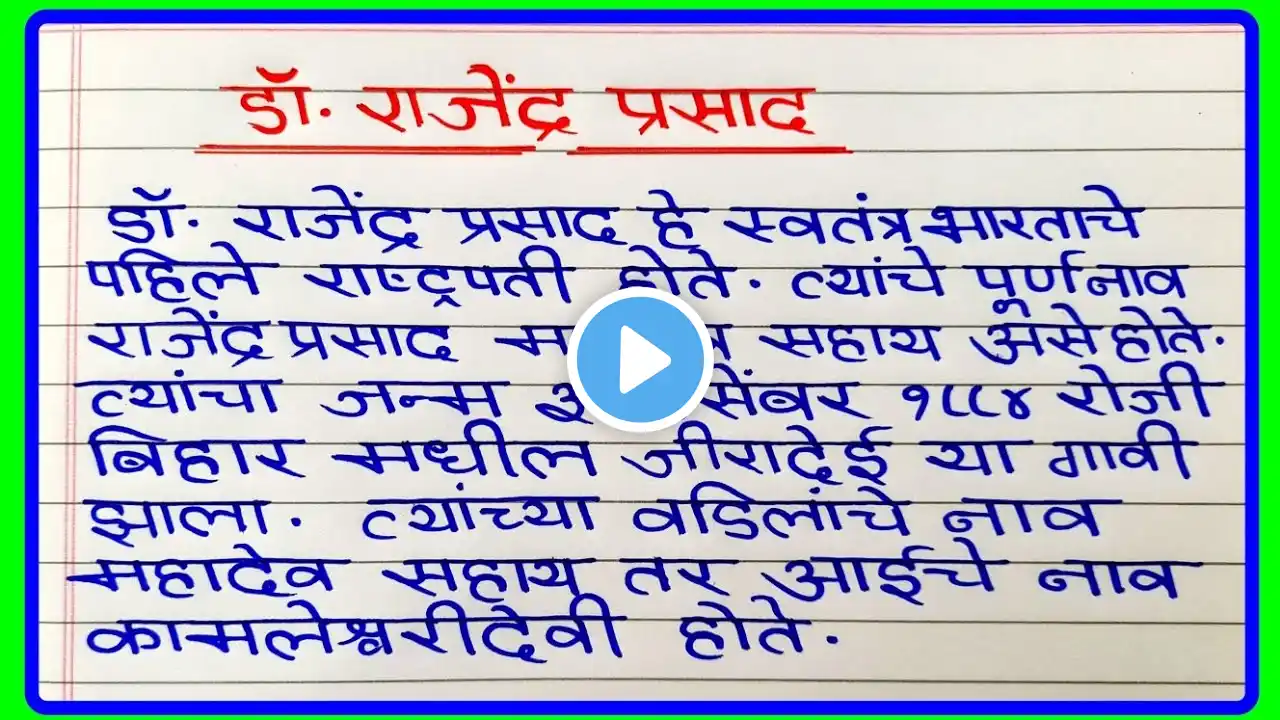 डॉ. राजेंद्र प्रसाद
डॉ. राजेंद्र प्रसाद हे स्वतंत्र भारताचे
पहिले राष्ट्रपती होते. त्यांचे पूर्ण नाव
राजेंद्र प्रसाद सहाय असे होते.
त्यांचा जन्म ३ १८८४ रोजी
बिहार मधील जीरादेई या गावी
झाला. त्यांच्या वडिलांचे नाव
महादेव सहाय तर आईचे नाव
कामलेश्वरीदेवी होते.